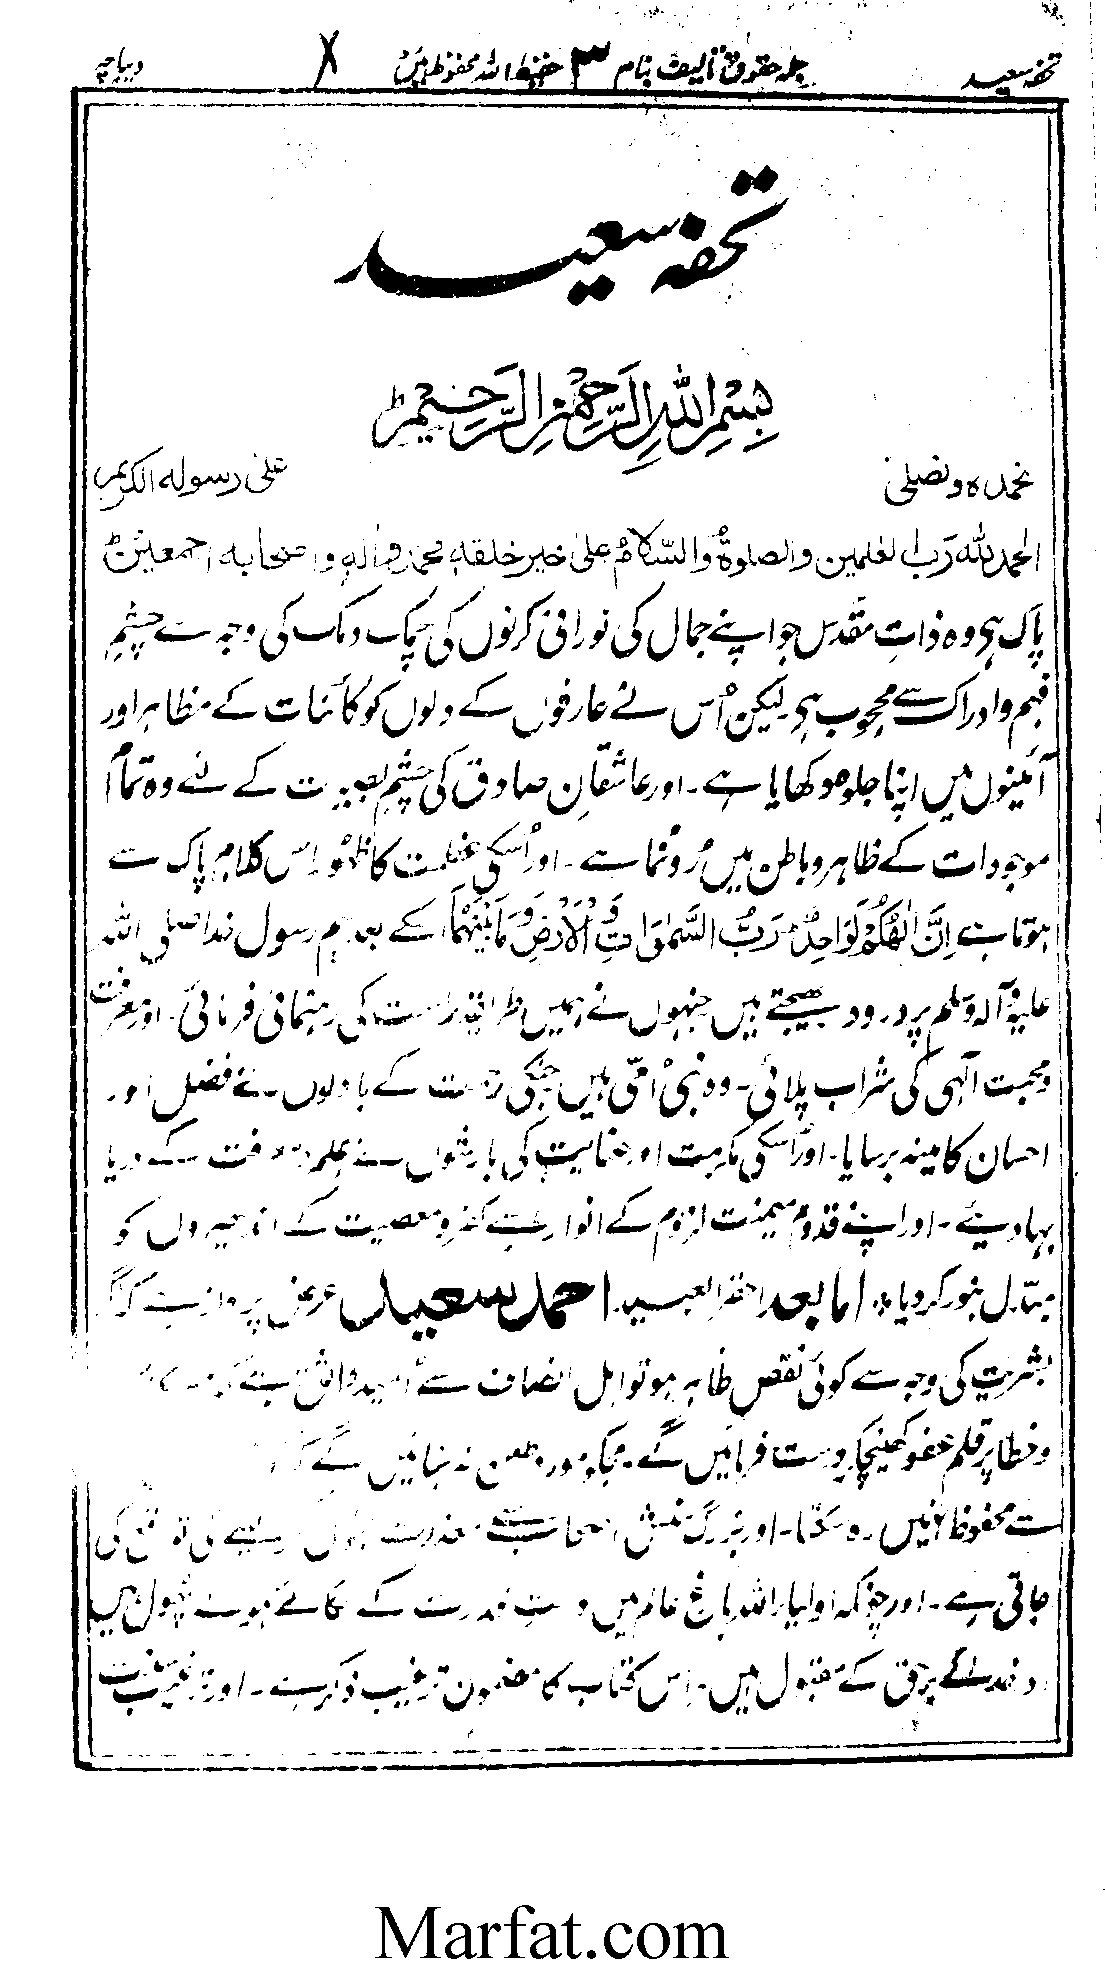 تحفہ سعید
جملہ حقوق تالیف بنام ۳ حفیظ اللہ محفوظ ہیں
دیباچہ
تحفہ سعید
بِسْمِ اللهِ الرَّحْمٰنِ الرَّحِيْمِ ط
نحمدہ و نصلی علی رسولہ الکریم
الحمد للہ رَبّ العٰلمین والصلوۃُ والسَّلامُ علیٰ خیر خلقہٖ محمد وآلہٖ واصحابہ اجمعین ط
پاک ہی وہ ذاتِ مقدس جو اپنے جمال کی نورانی کرنوں کی چمک دمک کی وجہ سے چشمِ
فہم و ادراک سے محجوب ہی لیکن اُس نے عارفوں کے دلوں کو کائنات کے مظاہر اور
آئینوں میں اپنا جلوہ دکھایا ہے۔ اور عاشقانِ صادق کی چشمِ بصیرت کے لئے وہ تمام
موجودات کے ظاہر و باطن میں رُونما ہے۔ اور اُسکی عظمت کا ظہور اس کلام پاک سے
ہوتا ہے اِنَّ اِلٰهَكُمْ لَوَاحِدٌ رَبُّ السَّمٰوَاتِ وَالْاَرْضِ وَمَا بَيْنَهُمَا اسکے بعد ہم رسول خدا صلی اللہ
علیہ وآلہ وسلم پر درود بھیجتے ہیں جنہوں نے ہمیں طریقہ راست کی رہنمائی فرمائی۔ اور معرفت
و محبت الٰہی کی شراب پلائی۔ وہ نبی اُمّی ہیں جنکی رحمت کے بادلوں نے فضل اور
احسان کا مینہ برسایا۔ اور اُسکی مکرمت اور عنایت کی بارشوں نے علم و معرفت کے دریا
بہا دیئے۔ اور اپنے قدوم میمنت لزوم کے انوار سے کفر و معصیت کے اندھیروں کو
مبدّل بنور کر دیا۔ اما بعد احقر العبید احمد سعید عرض پرداز ہے کہ اگر
بشریت کی وجہ سے کوئی نقص ظاہر ہو تو اہل انصاف سے اُمید واثق ہے کہ
و خطا پر قلم عفو کھینچکر درست فرمائیں گے۔ مجکو مورد طعن نہ بنائیں گے
سے محفوظ نہیں رہ سکتا۔ اور بزرگ منش اصحاب سے معذرت قبول کی توقع کی
جاتی ہے۔ اور چونکہ اولیاء اللہ باغِ عالم میں دستِ قدرت کے لگائے ہوئے پھول ہیں
اور خدائے برحق کے مقبول ہیں۔ اِس کتاب کا مضمون ترغیب ذکر ہے۔ اور ترغیب
Marfat.com